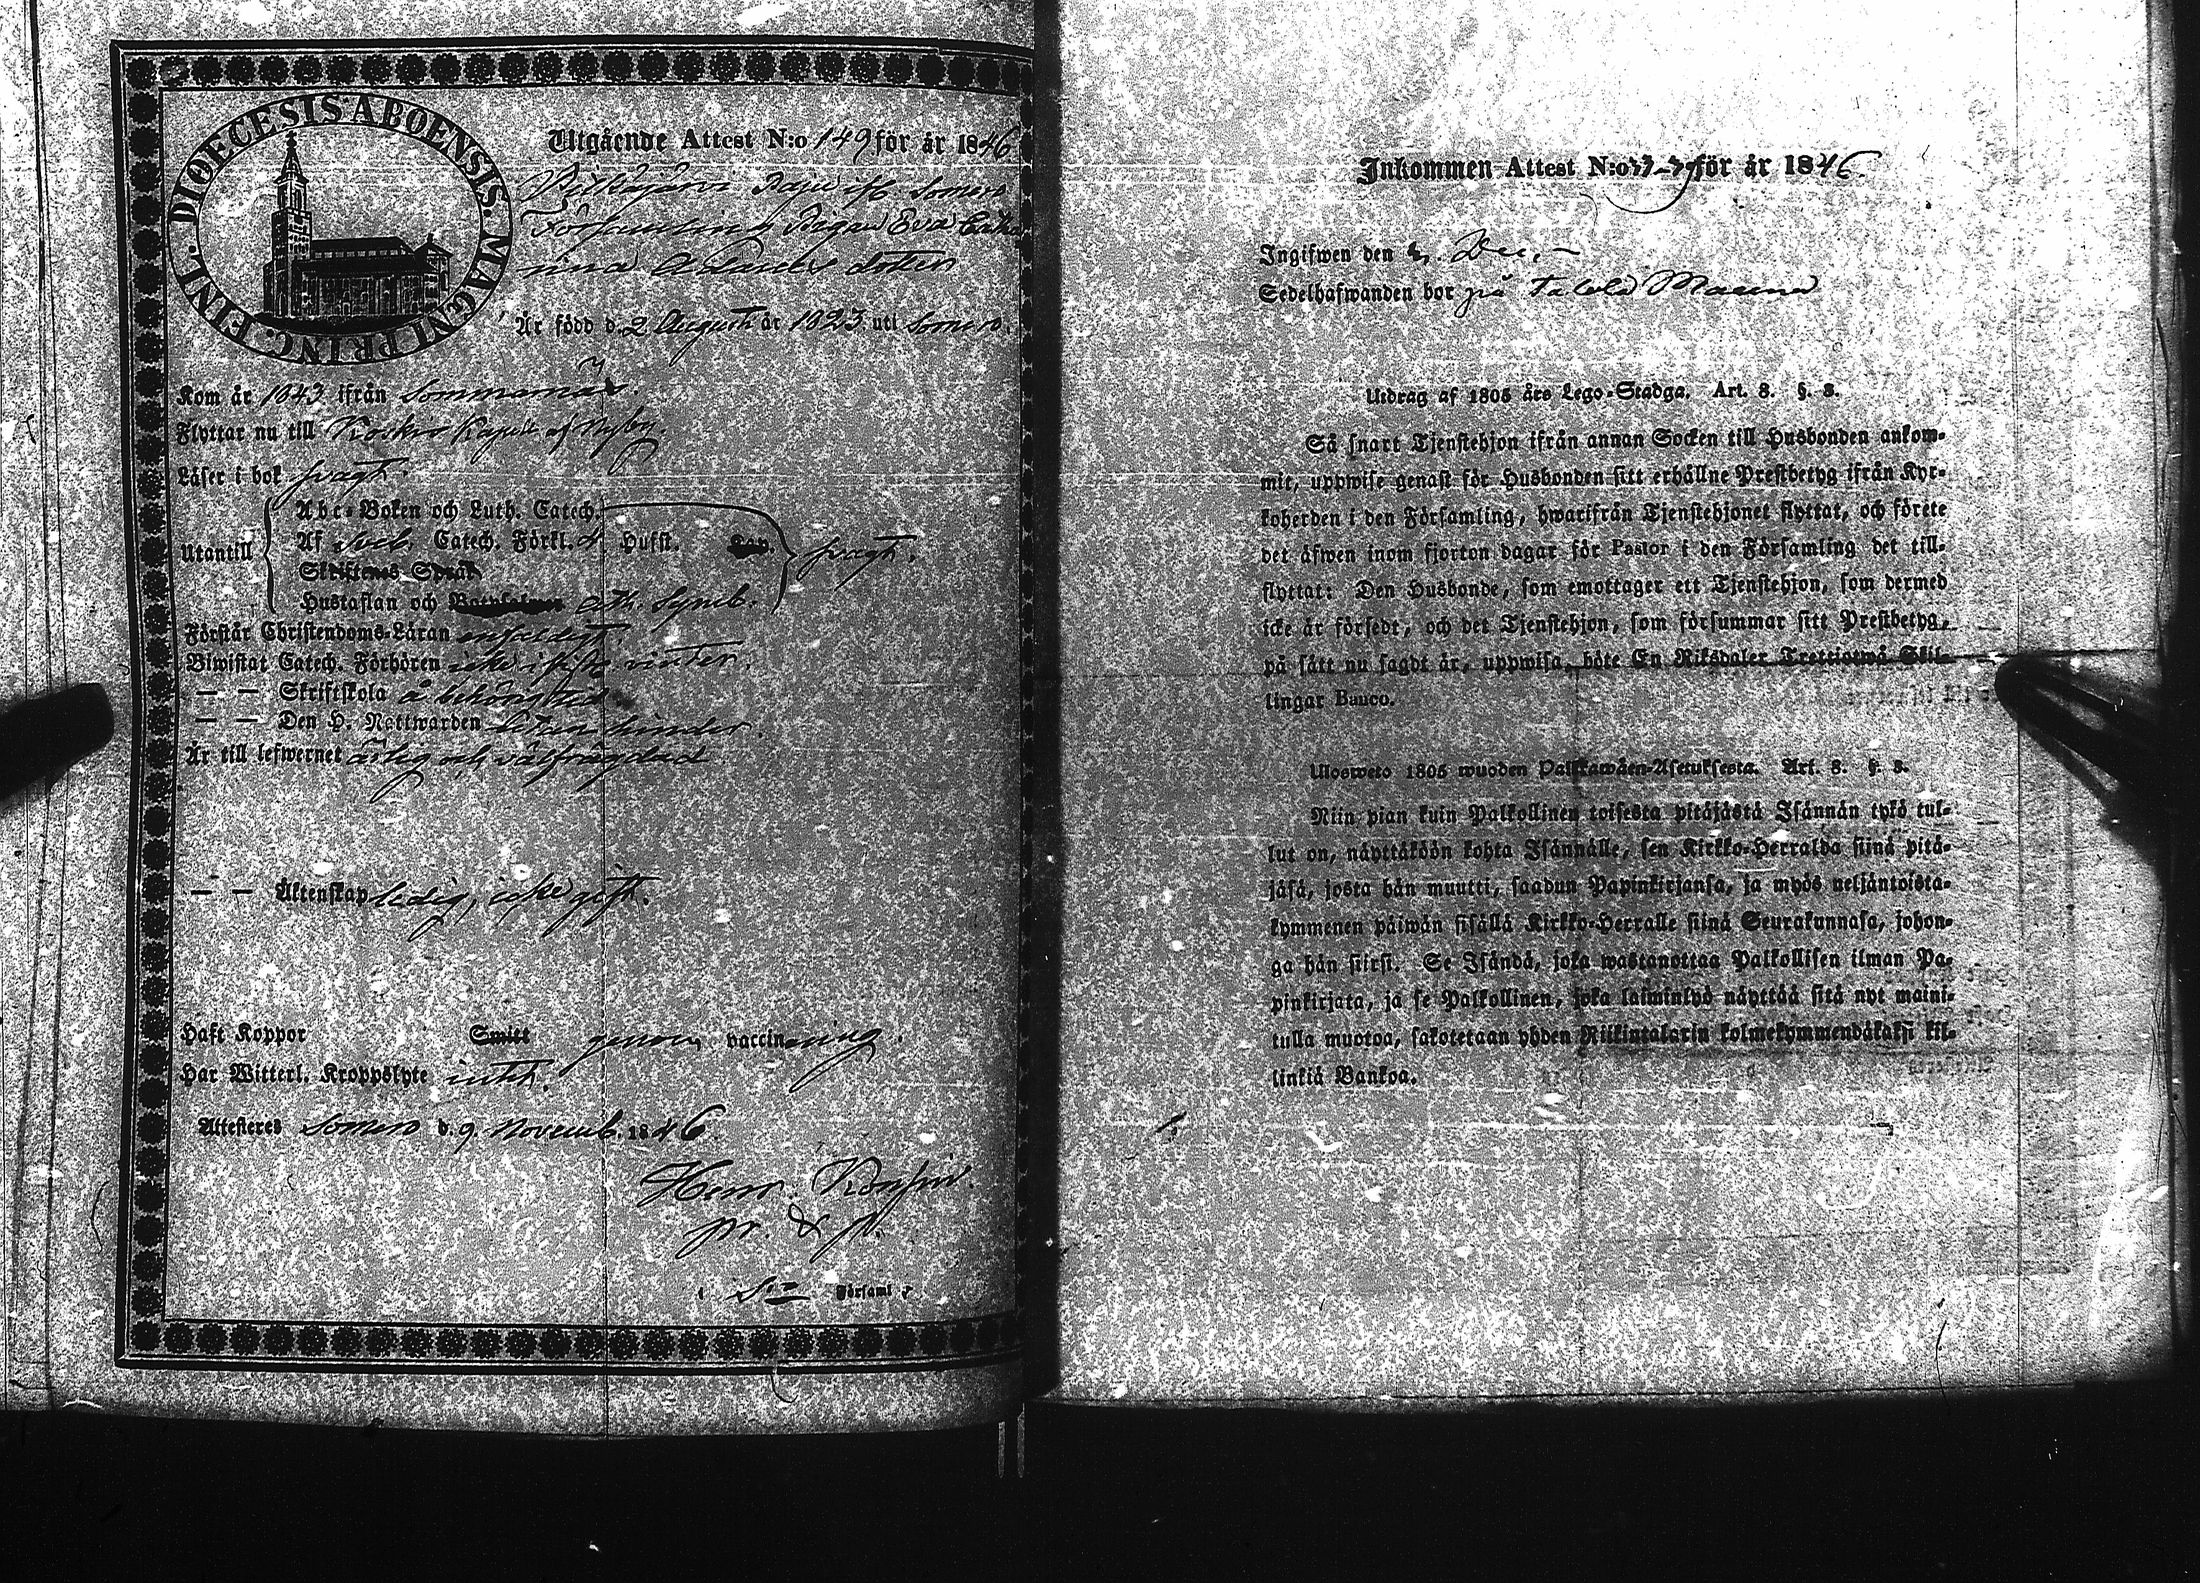 DIOECESIS ABOENSIS. MAGNI PRINC. FINL.
Utgående Attest N:o 149 för år 1846
Församling Pigan Eva Catha
rina dotter
Är född d. 2 Augusti år 1823 uti Somero.
Kom år 1843 ifrån Sommarnäs.
Flyttar nu till Koskis Kapell af Nyby.
Läser i bok svagt.
Utantill
Abc-Boken och Luth. Catech.
Af Sveb. Catech. Förkl. Hufst. Tab.
Skriftenes Språk
svagt.
Hustaflan och Ath. Symb.
Förstår Christendoms-Läran enfaldigt.
Biwistat Catech. Förhören icke i sista vinter.
— — Skriftskola å behörig tid
— — Den H. Nattwarden utan hinder.
Är till lefwernet ärlig och välfrägdad
— — Äktenskap ledig, icke gift.
Haft Koppor Smitt genom vaccinering.
Har Witterl. Kroppslyte intet.
Attesteres Somero d. 9. Novemb. 1846.
Henr.
pr. & p.
i S:o Församl.
Inkommen Attest N:o för år 1846.
Ingifwen den Dec.
Sedelhafwanden bor på
Utdrag af 1805 års Lego-Stadga. Art. 8. §. 8.
Så snart Tjenstehjon ifrån annan Socken till Husbonden ankom-
mit, uppwise genast för Husbonden sitt erhållne Prestbetyg ifrån Kyr-
koherden i den Församling, hwarifrån Tjenstehjonet flyttat, och förete
det äfwen inom fjorton dagar för Pastor i den Församling det till-
flyttat: Den Husbonde, som emottager ett Tjenstehjon, som dermed
icke är försedt, och det Tjenstehjon, som försummar sitt Prestbetyg,
på sätt nu sagdt är, uppwisa, böte En Riksdaler Trettiotwå Skil-
lingar Banco.
Ulosweto 1805 wuoden Palkkawäen-Asetuksesta. Art. 8. §. 8.
Niin pian kuin Palkollinen toisesta pitäjästä Isännän tykö tul-
lut on, näyttäköön kohta Isännälle, sen Kirkko-Herralda siinä pitä-
jäsä, josta hän muutti, saadun Papinkirjansa, ja myös neljäntoista-
kymmenen päiwän sisällä Kirkko-Herralle siinä Seurakunnasa, johon-
ga hän siirsi. Se Isändä, joka wastanottaa Palkollisen ilman Pa-
pinkirjata, ja se Palkollinen, joka laiminlyö näyttää sitä nyt maini-
tulla muotoa, sakotetaan yhden Riikintalarin kolmekymmendäkaksi kil-
linkiä Bankoa.